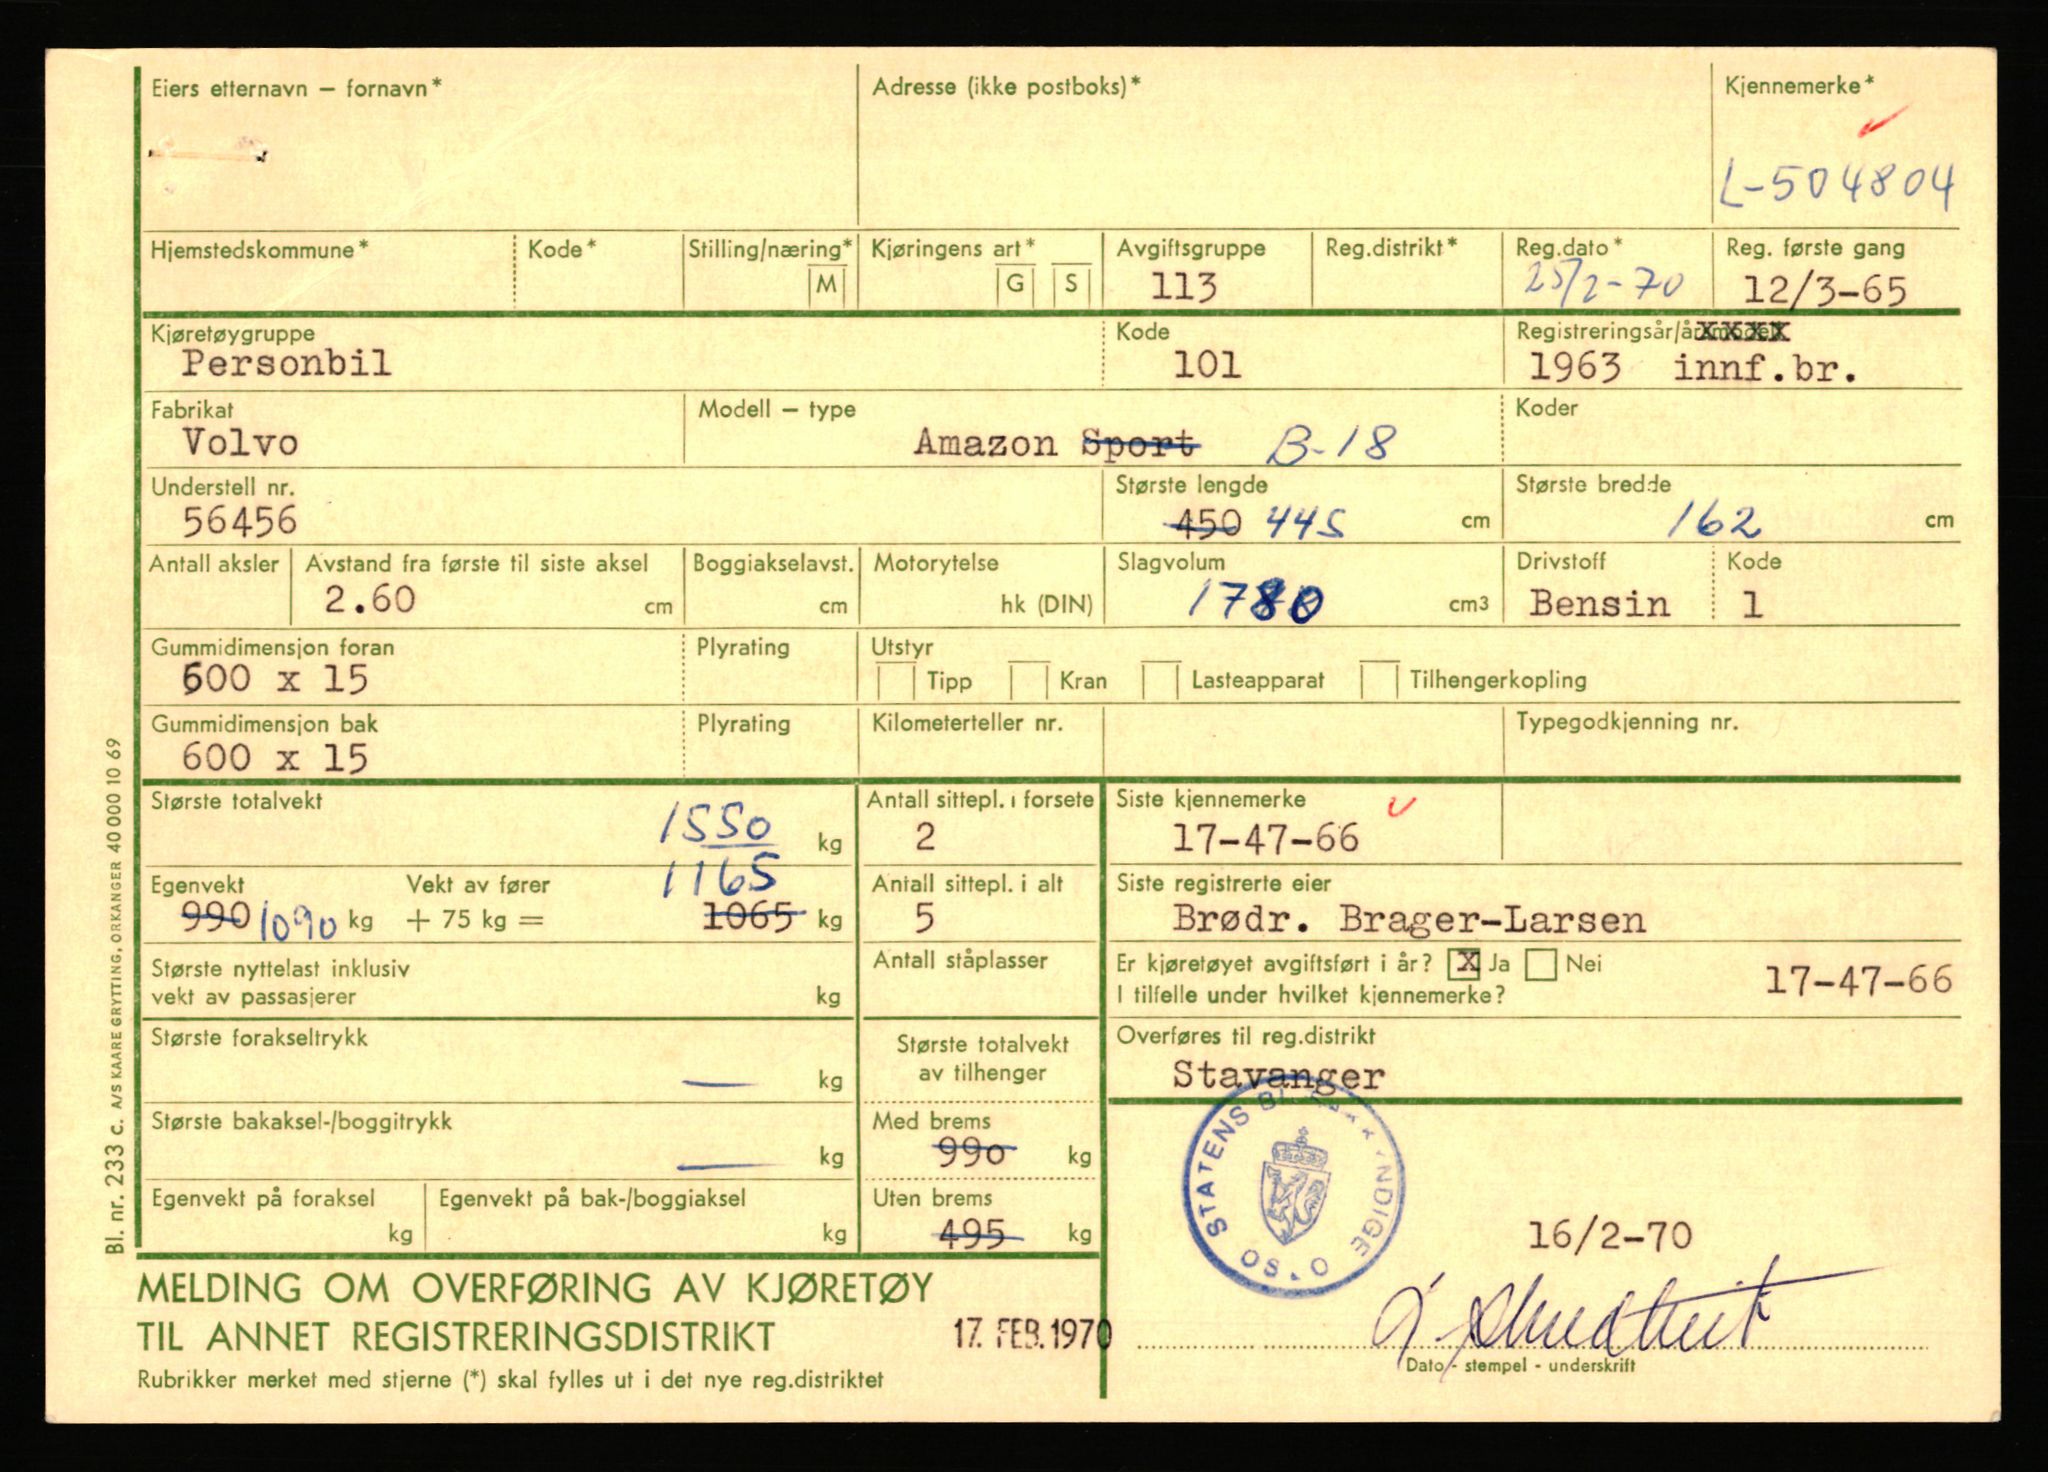 Eiers etternavn – fornavn* Adresse (ikke postboks)* Kjennemerke*
L-504804
Hjemstedskommune* Kode* Stilling/næring* M Kjøringens art* G S Avgiftsgruppe Reg.distrikt* Reg.dato* Reg. første gang
113 25/2-70 12/3-65
Kjøretøygruppe Kode Registreringsår/årsmodell
Personbil 101 1963 innf.br.
Fabrikat Modell – type Koder
Volvo Amazon Sport B-18
Understell nr. Største lengde Største bredde
56456 450 445 cm 162 cm
Antall aksler Avstand fra første til siste aksel Boggiakselavst. Motorytelse Slagvolum Drivstoff Kode
2.60 cm cm hk (DIN) 1780 cm3 Bensin 1
Gummidimensjon foran Plyrating Utstyr
600 x 15 Tipp Kran Lasteapparat Tilhengerkopling
Gummidimensjon bak Plyrating Kilometerteller nr. Typegodkjenning nr.
600 x 15
Største totalvekt Antall sittepl. i forsete Siste kjennemerke
1550 kg 2 17-47-66
Egenvekt Vekt av fører 1165 Antall sittepl. i alt Siste registrerte eier
990 1090 kg + 75 kg = 1065 kg 5 Brødr. Brager-Larsen
Største nyttelast inklusiv Antall ståplasser Er kjøretøyet avgiftsført i år? X Ja Nei
vekt av passasjerer kg I tilfelle under hvilket kjennemerke? 17-47-66
Største forakseltrykk Største totalvekt Overføres til reg.distrikt
— kg av tilhenger Stavanger
Største bakaksel-/boggitrykk Med brems
— kg 990 kg
Egenvekt på foraksel Egenvekt på bak-/boggiaksel Uten brems
kg kg 495 kg
STATENS BILSAKKYNDIGE OSLO
16/2-70
MELDING OM OVERFØRING AV KJØRETØY
TIL ANNET REGISTRERINGSDISTRIKT 17. FEB. 1970
Dato - stempel - underskrift
Rubrikker merket med stjerne (*) skal fylles ut i det nye reg.distriktet
Bl. nr. 233 c. A/S KAARE GRYTTING, ORKANGER 40 000 10 69